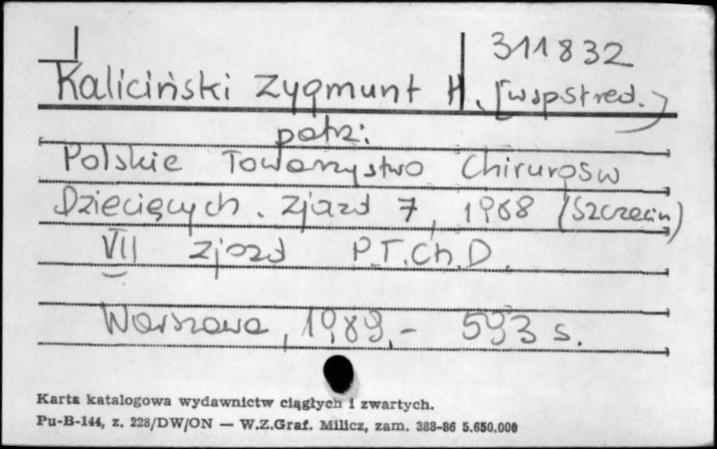 311832
Kaliciński Zygmunt H. [współred.]
patrz:
Polskie Towarzystwo Chirurgów
Dziecięcych. Zjazd 7, 1988 (Szczecin)
VII Zjazd P.T.Ch.D.
Warszawa, 1989.- 593 s.
Karta katalogowa wydawnictw ciągłych i zwartych.
Pu-B-144, z. 228/DW/ON — W.Z.Graf. Milicz, zam. 388-86 5.650.000